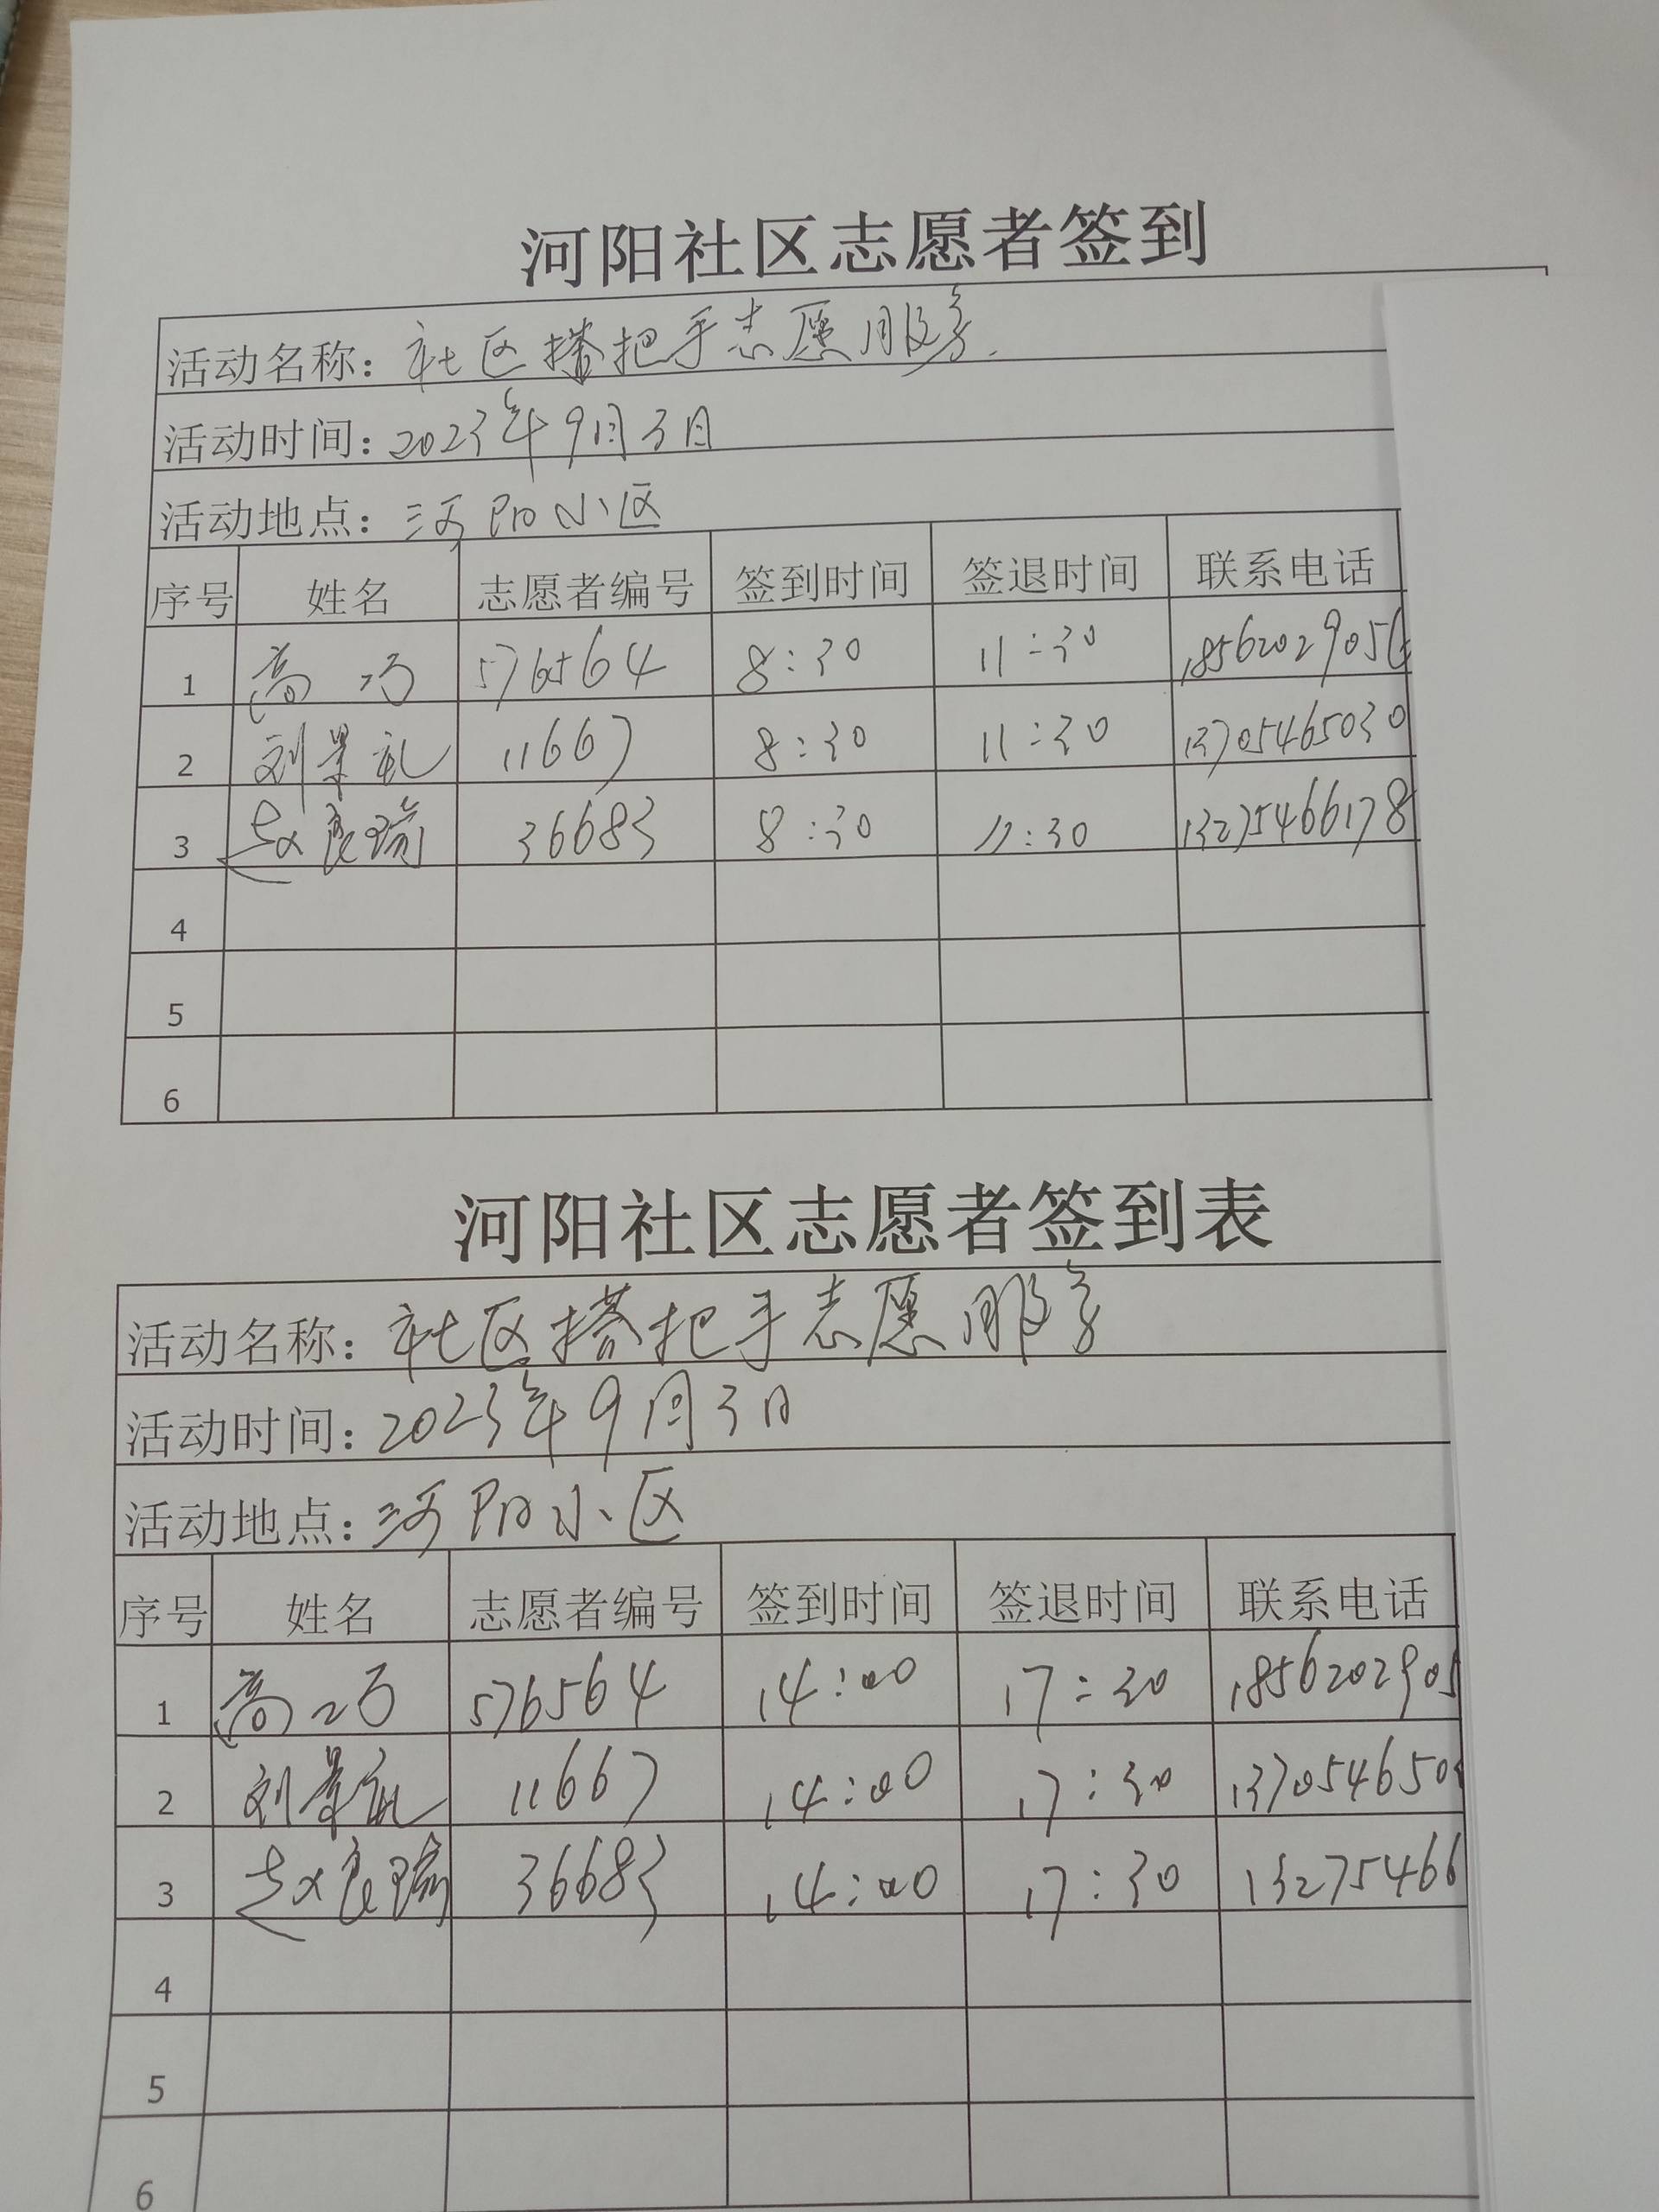 河阳社区志愿者签到
活动名称：社区搭把手志愿服务
活动时间：2023年9月3日
活动地点：河阳小区
序号 姓名 志愿者编号 签到时间 签退时间 联系电话
1 高巧 576564 8:30 11:30 1856202905
2 刘景礼 11667 8:30 11:30 13705465030
3 赵良瑞 36683 8:30 11:30 13275466178
4
5
6
河阳社区志愿者签到表
活动名称：社区搭把手志愿服务
活动时间：2023年9月3日
活动地点：河阳小区
序号 姓名 志愿者编号 签到时间 签退时间 联系电话
1 高巧 576564 14:00 17:30 1856202905
2 刘景礼 11667 14:00 17:30 137054650
3 赵良瑞 36683 14:00 17:30 13275466
4
5
6